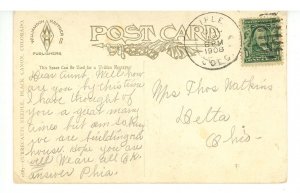 POST CARD
PUBLISHERS
This Space Can Be Used for a Written Message
RIFLE
1908
COLO.
Dear Aunt, Well how
are you by this time
I have thought of
you a gear many
times but am so busy
we are building a
house. hope you are
all well We are all OK
answer Phia.
Mrs Thos Watkins
Delta
Ohio.
CURECANTI NEEDLE, BLACK CANON, COLORADO.